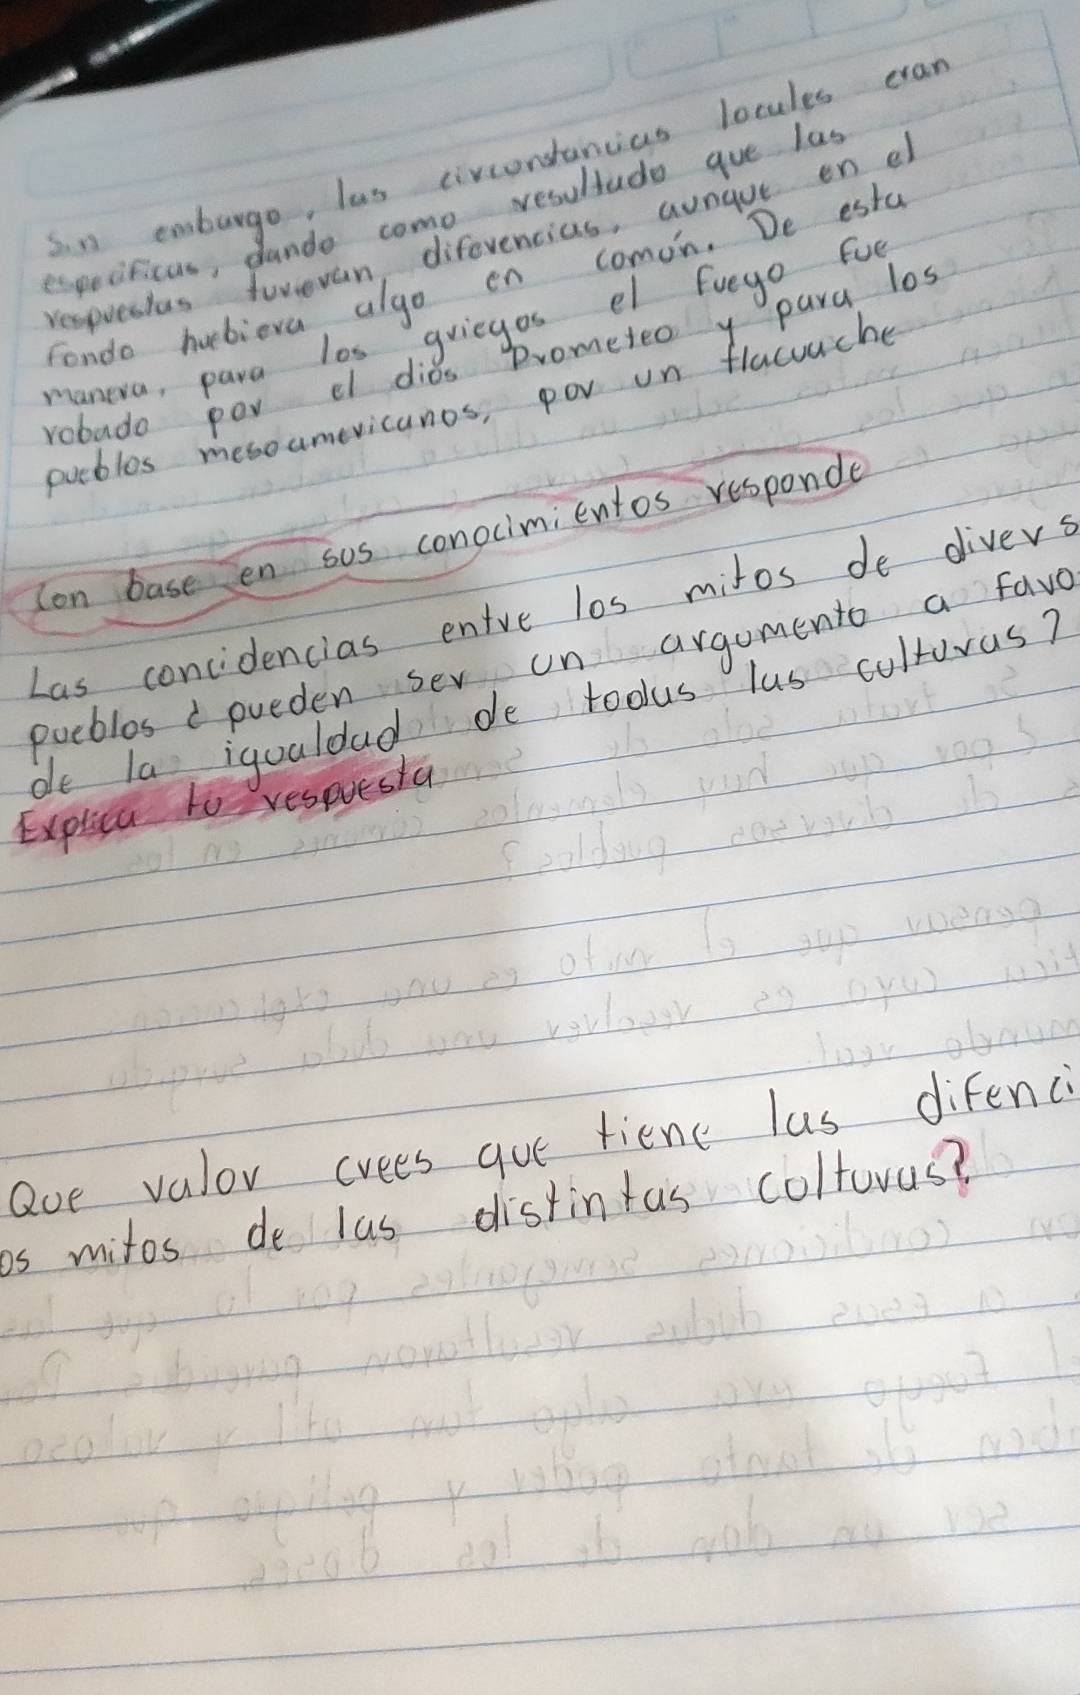 Sin embargo, las circonstancias locales eran
especificas, dando como resultado que las
respuestas tuvieran diferencias, aunque en el
fondo huebiera algo en común. De esta
manera, para los griegos el fuego fue
robado por el dios Prometeo y para los
pueblos mesoamericanos, por un tlacuache
Con base en sus conocimientos responde
Las concidencias entre los mitos de divers
pueblos ¿ pueden ser un argumento a favo
de la igualdad de todas las culturas?
Explica tu respuesta
Que valor crees que tiene las difenci
os mitos de las distintas colturas?